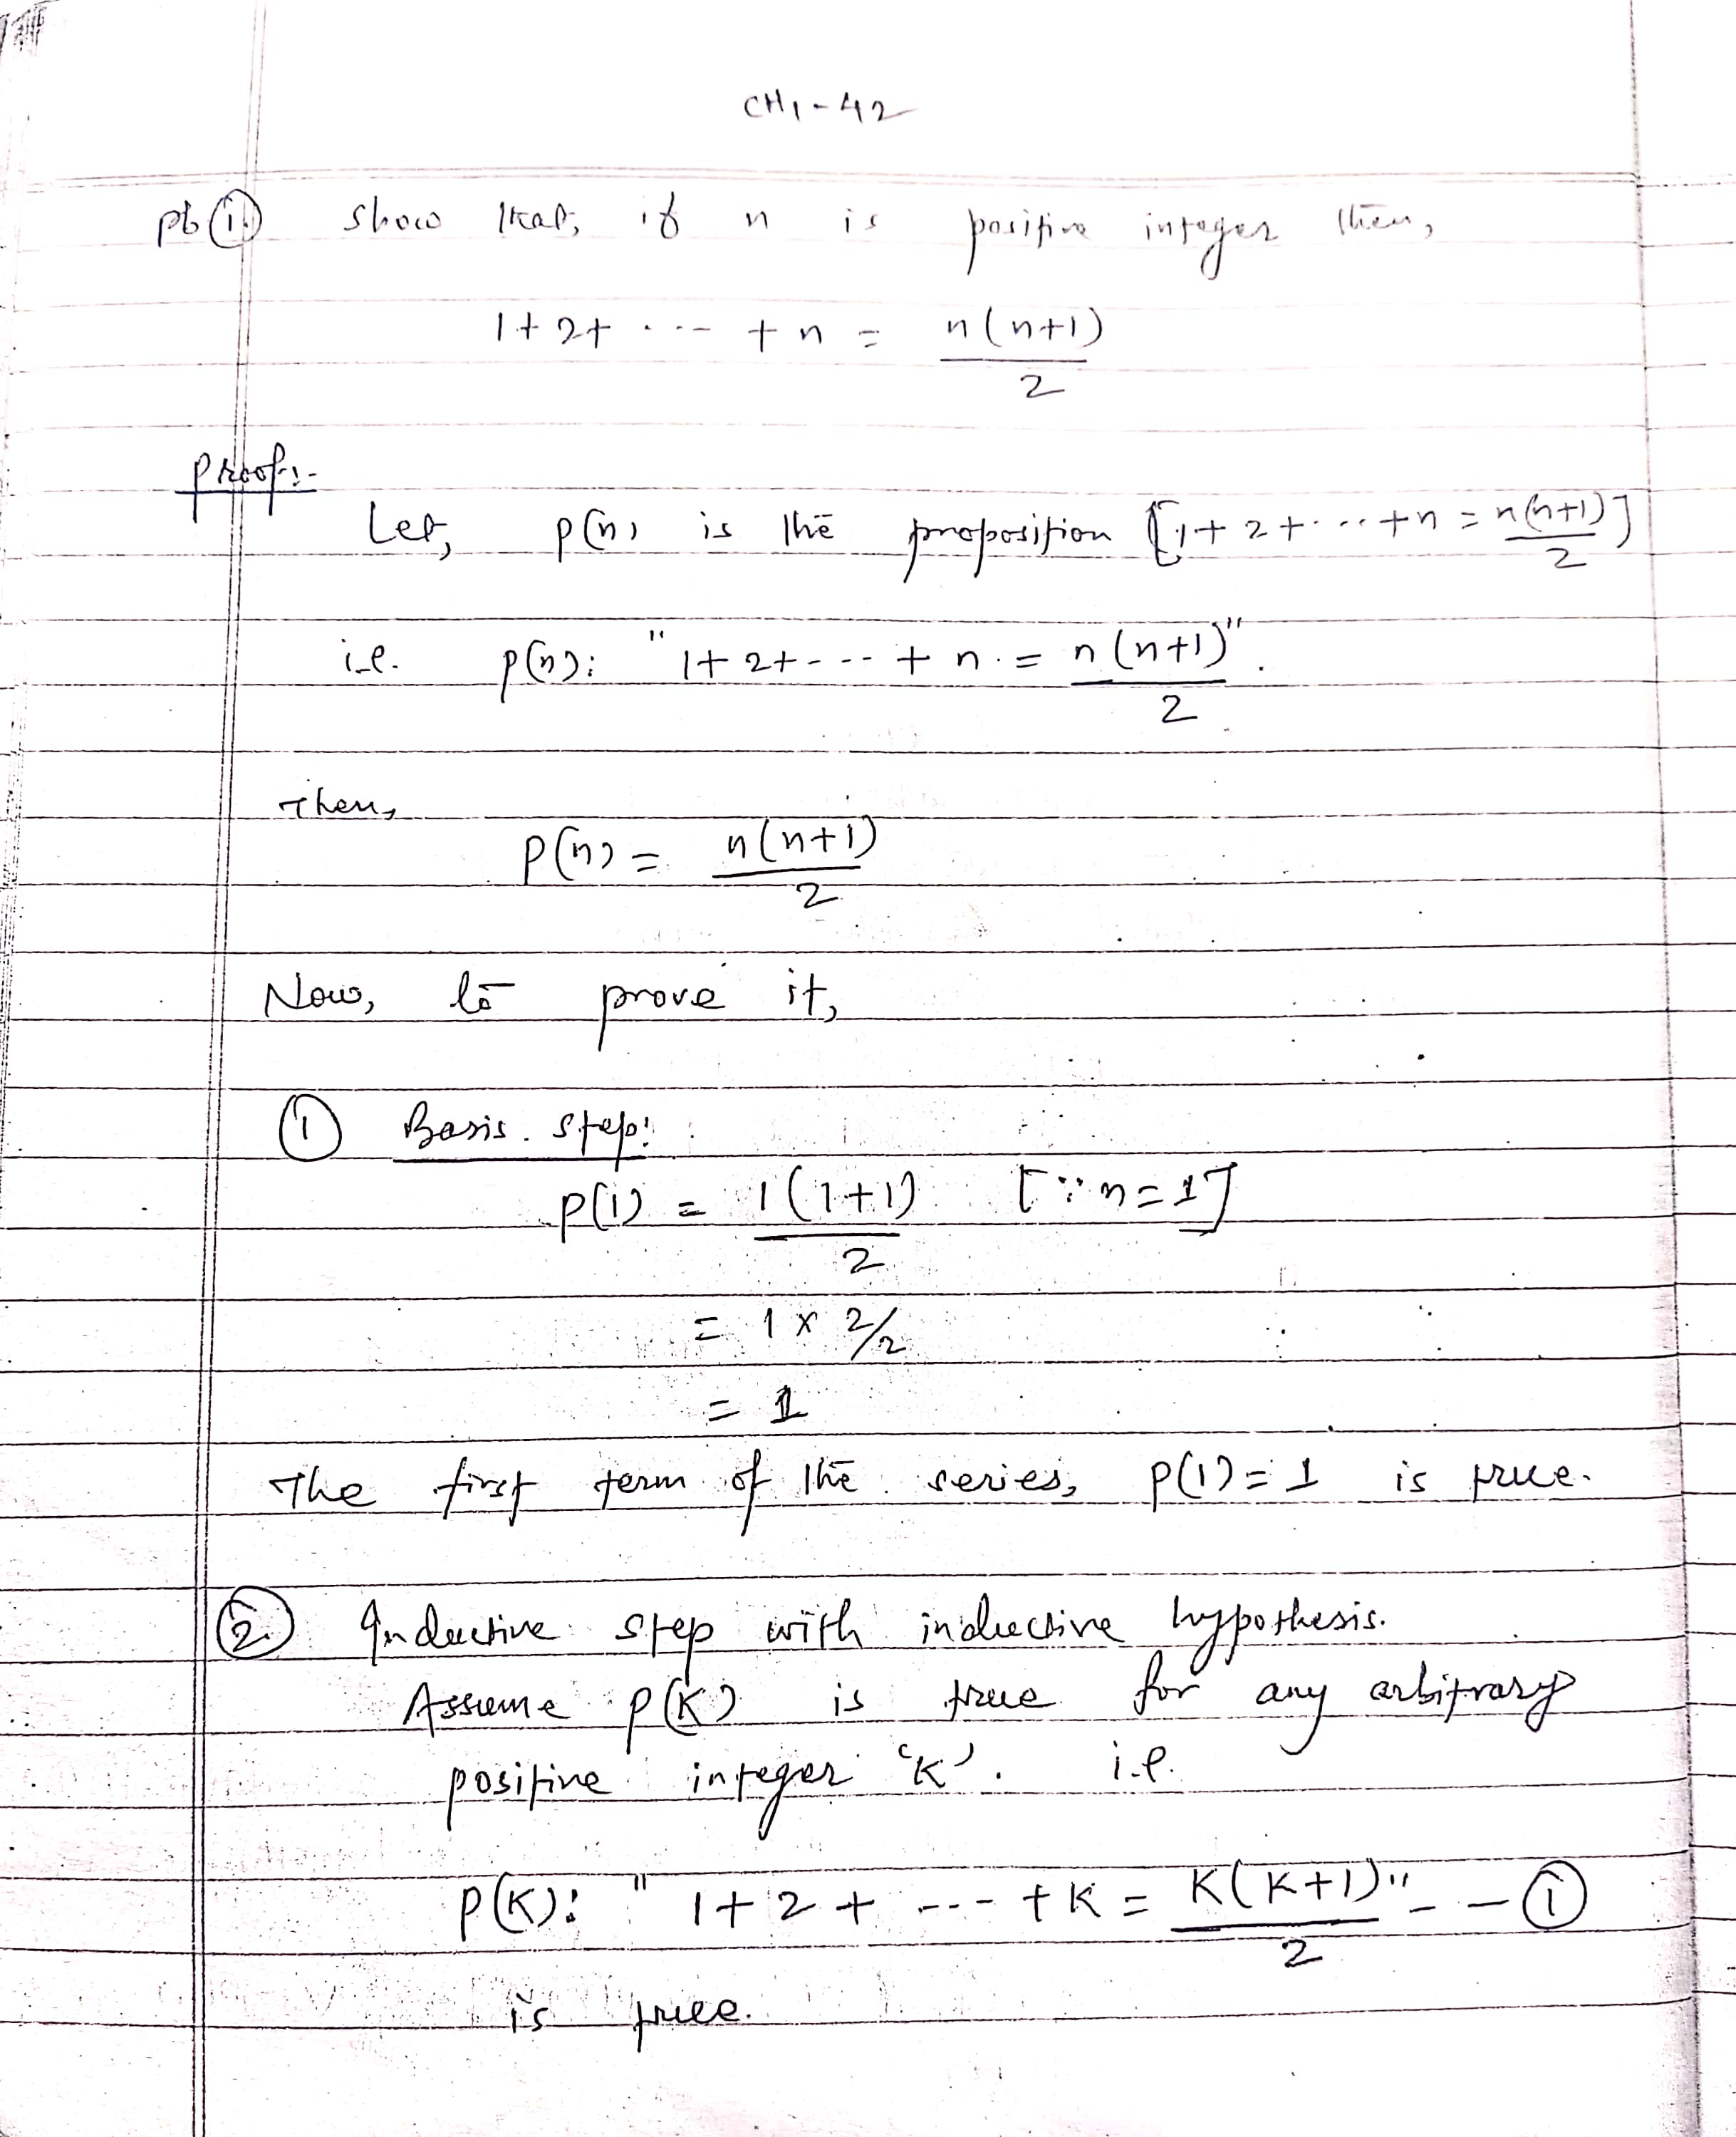 CH1-42
pb ① show that, if n is positive integer then,
1+2+ ... +n = n(n+1)/2
proof:-
Let, p(n) is the proposition [1+2+...+n = n(n+1)/2]
i.e. p(n): "1+2+---+n = n(n+1)/2".
Then,
P(n) = n(n+1)/2
Now, to prove it,
① Basis step:
P(1) = 1(1+1)/2 [∵ n=1]
= 1 x 2/2
= 1
The first term of the series, P(1)=1 is true.
② Inductive step with inductive hypothesis.
Assume P(K) is true for any arbitrary
positive integer 'K'. i.e.
P(K): "1+2+ ---+K = K(K+1)/2" -- ①
is true.